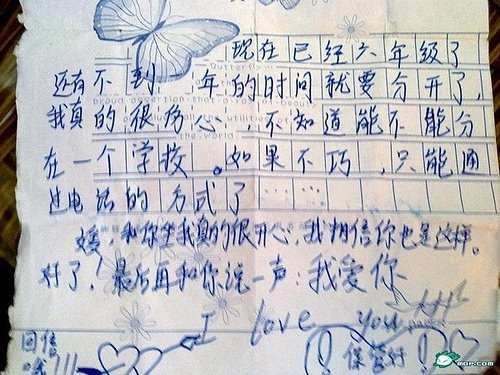 现在已经六年级了
还有不到一年的时间就要分开了,
我真的很伤心,不知道能不能分
在一个学校。如果不巧,只能通
过电话的方式了……
,和你坐我真的很开心,我相信你也是这样。
对了!最后再和你说一声:我爱你
I love you
回信哦!!!
保管好!
MOP.COM